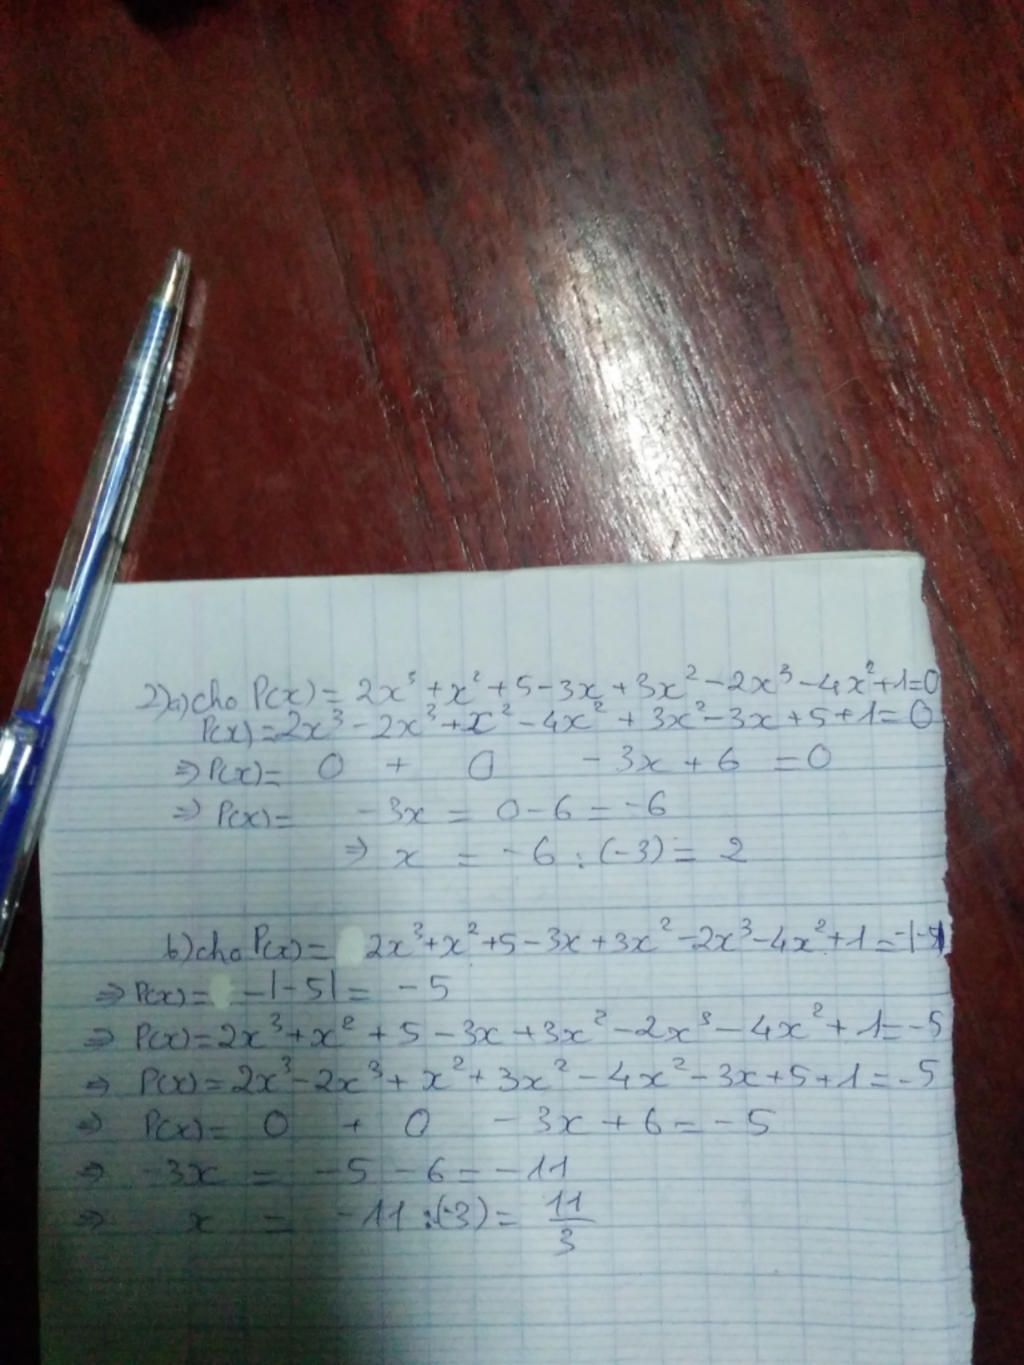 2)a)cho P(x) = 2x³ + x² + 5 - 3x + 3x² - 2x³ - 4x² + 1 = 0
P(x) = 2x³ - 2x³ + x² - 4x² + 3x² - 3x + 5 + 1 = 0
⇒ P(x) = 0 + 0 - 3x + 6 = 0
⇒ P(x) = - 3x = 0 - 6 = - 6
⇒ x = - 6 : (-3) = 2
b) cho P(x) = 2x³ + x² + 5 - 3x + 3x² - 2x³ - 4x² + 1 = -|-5|
⇒ P(x) = -|-5| = -5
⇒ P(x) = 2x³ + x² + 5 - 3x + 3x² - 2x³ - 4x² + 1 = -5
⇒ P(x) = 2x³ - 2x³ + x² + 3x² - 4x² - 3x + 5 + 1 = -5
⇒ P(x) = 0 + 0 - 3x + 6 = - 5
⇒ -3x = -5 - 6 = - 11
⇒ x = -11 : (-3) = 11/3